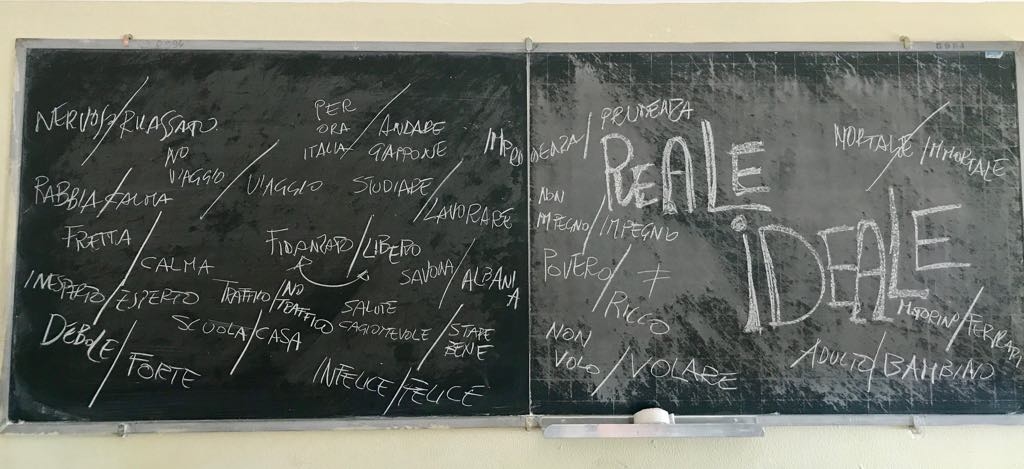 NERVOSO/RILASSATO
PER
ORA
ITALIA/ANDARE
GIAPPONE
NO
VIAGGIO/VIAGGIO
RABBIA/CALMA
STUDIARE
/LAVORARE
FRETTA
/CALMA
FIDANZATO/LIBERO
SAVONA/ALBANI
A
INESPERTO/ESPERTO
TRAFFICO/NO
TRAFFICO
SCUOLA/CASA
SALUTE
CAGIONEVOLE/STARE
BENE
DEBOLE/FORTE
INFELICE/FELICE
IMPRUDENZA/PRUDENZA
REALE
IDEALE
MORTALE/IMMORTALE
NON
IMPEGNO/IMPEGNO
POVERO/≠
RICCO
NON
VOLO/VOLARE
MOTORINO/FERRARI
ADULTO/BAMBINO